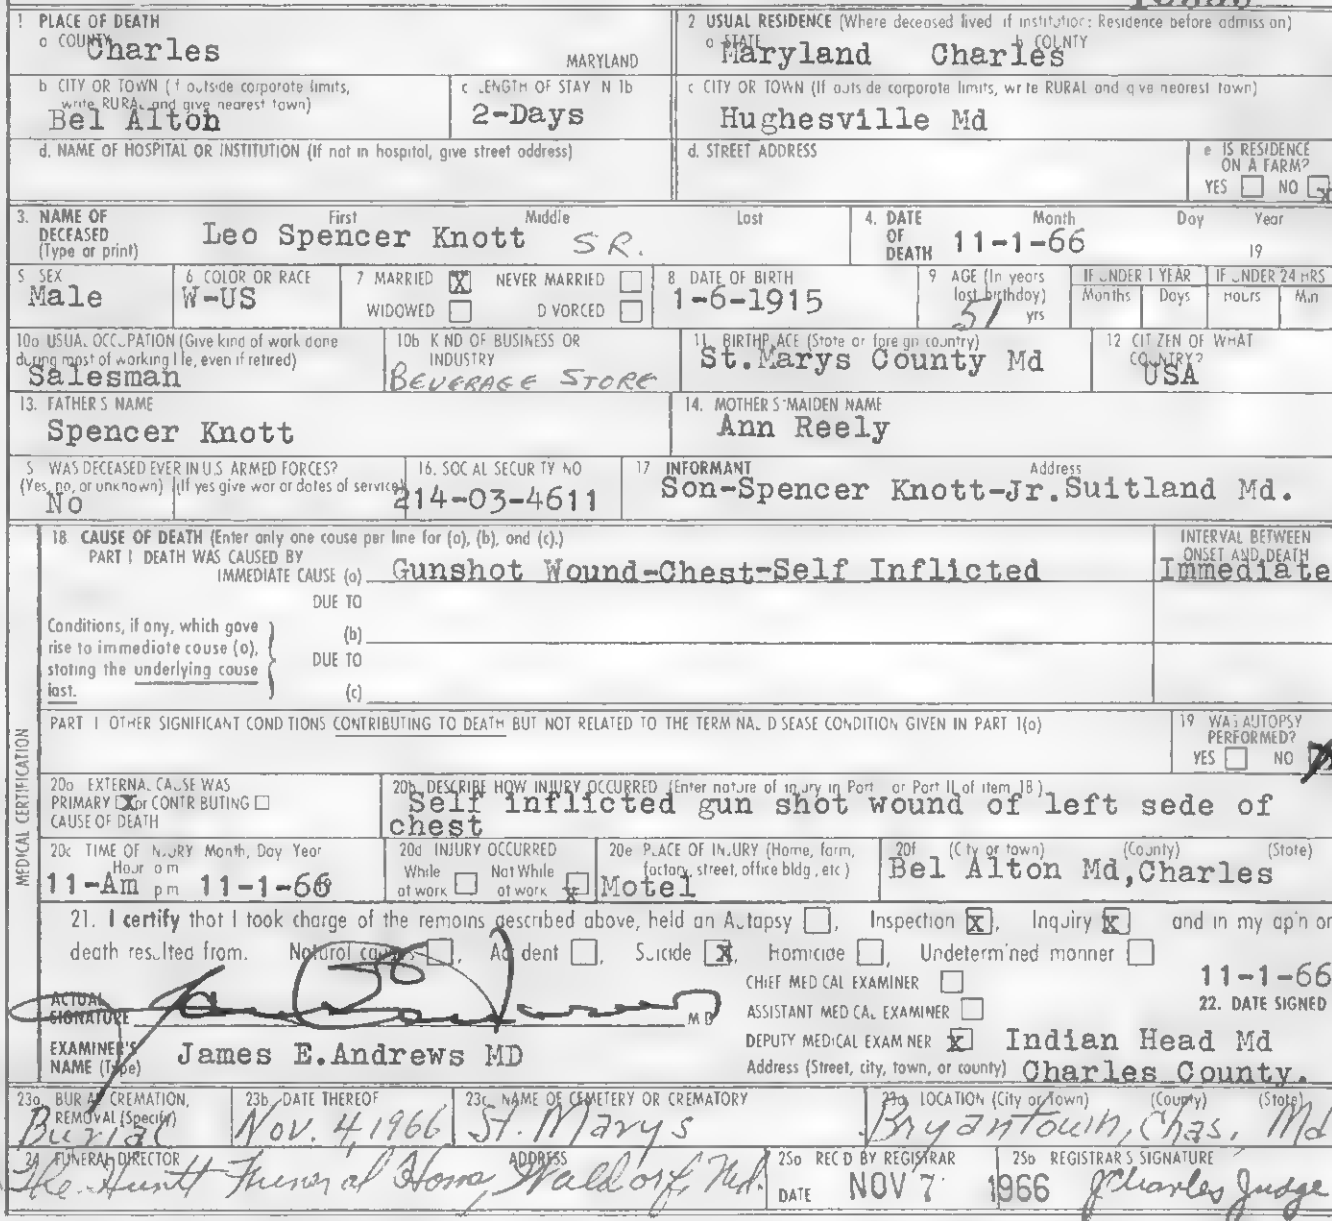 1 PLACE OF DEATH
a COUNTY Charles MARYLAND
2 USUAL RESIDENCE (Where deceased lived if institution: Residence before admission)
a STATE Maryland b COUNTY Charles
b CITY OR TOWN (If outside corporate limits, write RURAL and give nearest town)
Bel Alton
c LENGTH OF STAY IN 1b
2-Days
c CITY OR TOWN (If outside corporate limits, write RURAL and give nearest town)
Hughesville Md
d. NAME OF HOSPITAL OR INSTITUTION (If not in hospital, give street address)
d. STREET ADDRESS
e IS RESIDENCE ON A FARM?
YES NO X
3. NAME OF DECEASED (Type or print)
First Middle Last
Leo Spencer Knott SR.
4. DATE OF DEATH
Month Day Year
11-1-66 19
5 SEX
Male
6 COLOR OR RACE
W-US
7 MARRIED X NEVER MARRIED
WIDOWED DIVORCED
8 DATE OF BIRTH
1-6-1915
9 AGE (In years last birthday)
51 yrs
IF UNDER 1 YEAR
Months Days
IF UNDER 24 HRS
Hours Min
10a USUAL OCCUPATION (Give kind of work done during most of working life, even if retired)
Salesman
10b KIND OF BUSINESS OR INDUSTRY
BEVERAGE STORE
11. BIRTHPLACE (State or foreign country)
St.Marys County Md
12 CITIZEN OF WHAT COUNTRY?
USA
13. FATHER'S NAME
Spencer Knott
14. MOTHER'S MAIDEN NAME
Ann Reely
5 WAS DECEASED EVER IN U.S. ARMED FORCES?
(Yes, no, or unknown) (If yes give war or dates of service)
No
16. SOCIAL SECURITY NO
214-03-4611
17 INFORMANT Address
Son-Spencer Knott-Jr.Suitland Md.
18 CAUSE OF DEATH (Enter only one cause per line for (a), (b), and (c).)
PART I DEATH WAS CAUSED BY
IMMEDIATE CAUSE (a) Gunshot Wound-Chest-Self Inflicted
INTERVAL BETWEEN ONSET AND DEATH
Immediate
DUE TO
(b)
DUE TO
(c)
Conditions, if any, which gave rise to immediate cause (a), stating the underlying cause last.
PART I OTHER SIGNIFICANT CONDITIONS CONTRIBUTING TO DEATH BUT NOT RELATED TO THE TERMINAL DISEASE CONDITION GIVEN IN PART 1(a)
19 WAS AUTOPSY PERFORMED?
YES NO X
MEDICAL CERTIFICATION
20a EXTERNAL CAUSE WAS
PRIMARY X or CONTRIBUTING
CAUSE OF DEATH
20b DESCRIBE HOW INJURY OCCURRED (Enter nature of injury in Part or Part II of item 18)
Self inflicted gun shot wound of left sede of
chest
20c TIME OF INJURY Month, Day Year
Hour a m
p m
11-Am 11-1-66
20d INJURY OCCURRED
While at work Not While at work X
20e PLACE OF INJURY (Home, farm, factory, street, office bldg., etc)
Motel
20f (City or town) (County) (State)
Bel Alton Md,Charles
21. I certify that I took charge of the remains described above, held an Autopsy , Inspection X, Inquiry X and in my opin on
death resulted from. Natural causes , Accident , Suicide X, Homicide , Undetermined manner
CHIEF MEDICAL EXAMINER
ASSISTANT MEDICAL EXAMINER
DEPUTY MEDICAL EXAMINER X
11-1-66
22. DATE SIGNED
ACTUAL SIGNATURE MD
EXAMINER'S NAME (Type)
James E.Andrews MD
Indian Head Md
Address (Street, city, town, or county) Charles County.
23a. BURIAL, CREMATION, REMOVAL (Specify)
Burial
23b. DATE THEREOF
Nov. 4, 1966
23c. NAME OF CEMETERY OR CREMATORY
St. Marys
23d LOCATION (City or town) (County) (State)
Bryantown, Chas. Md
24 FUNERAL DIRECTOR ADDRESS
The Huntt Funeral Home, Waldorf, Md.
25a REC'D BY REGISTRAR
DATE NOV 7 1966
25b REGISTRAR'S SIGNATURE
J Charles Judge